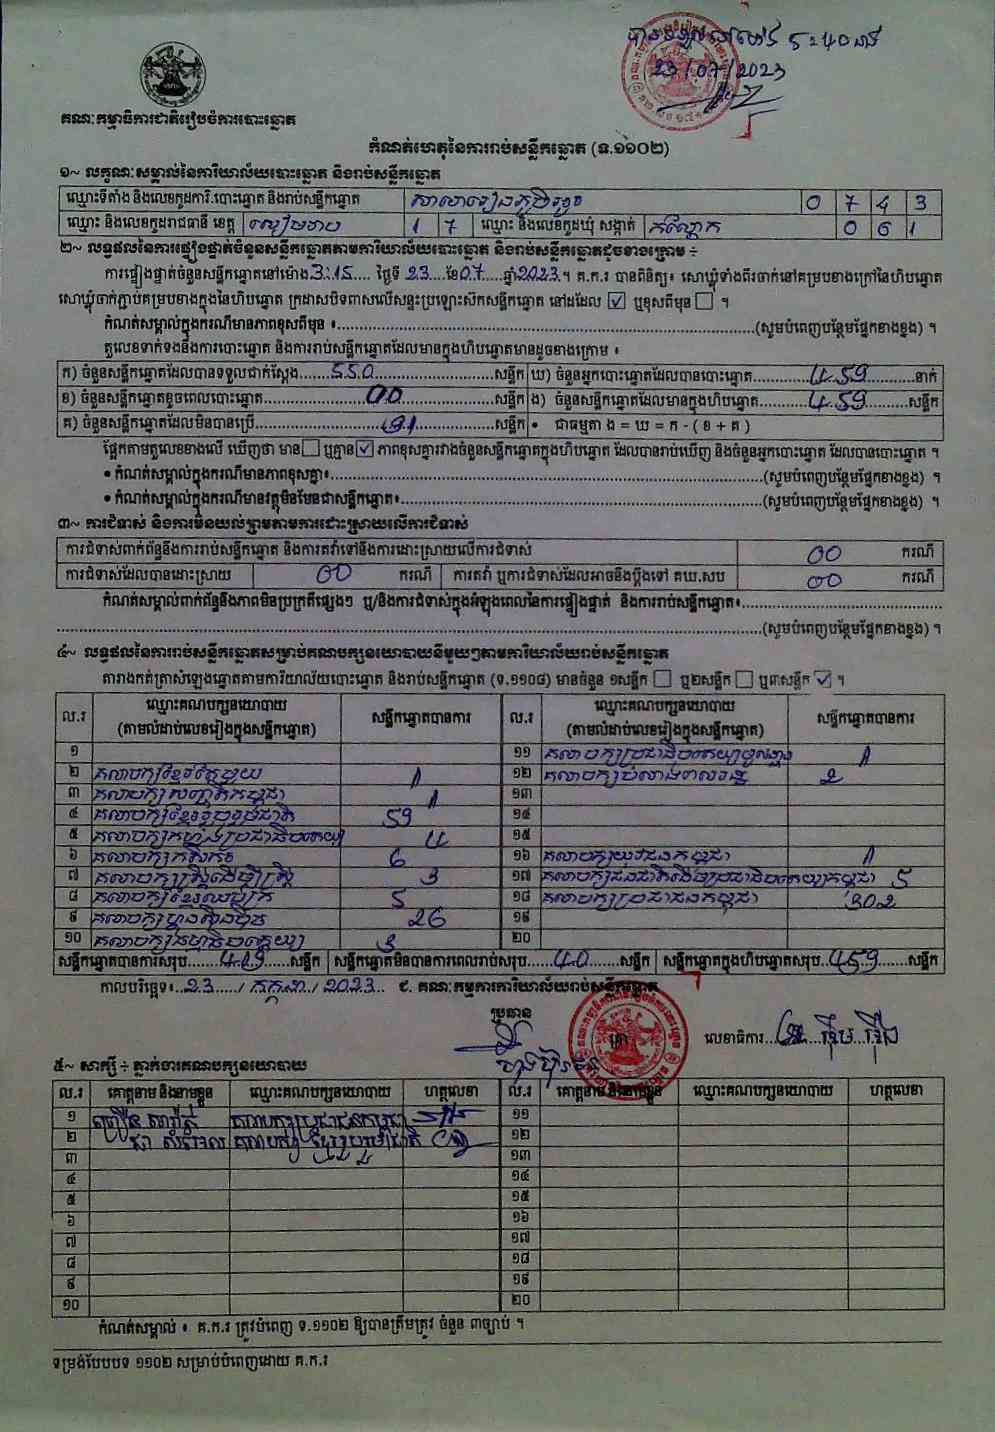 បានទទួលនៅម៉ោង 5:40 នាទី
23/07/2023
គណៈកម្មាធិការជាតិរៀបចំការបោះឆ្នោត
កំណត់ហេតុនៃការរាប់សន្លឹកឆ្នោត (ទ.១១០២)
១~ លក្ខណៈសម្គាល់នៃការិយាល័យបោះឆ្នោត និងរាប់សន្លឹកឆ្នោត
ឈ្មោះទីតាំង និងលេខកូដការិ.បោះឆ្នោត និងរាប់សន្លឹកឆ្នោត 0 7 4 3
ឈ្មោះ និងលេខកូដរាជធានី ខេត្ត សៀមរាប 1 7 ឈ្មោះ និងលេខកូដឃុំ សង្កាត់ 0 6 1
២~ លទ្ធផលនៃការផ្ទៀងផ្ទាត់ចំនួនសន្លឹកឆ្នោតតាមការិយាល័យបោះឆ្នោត និងរាប់សន្លឹកឆ្នោតដូចខាងក្រោម ÷
ការផ្ទៀងផ្ទាត់ចំនួនសន្លឹកឆ្នោតនៅម៉ោង 3:15 ថ្ងៃទី 23 ខែ 07 ឆ្នាំ 2023 ។ គ.ក.រ បានពិនិត្យ៖ សោឃ្លុំទាំងពីរចាក់នៅគម្របខាងក្រៅនៃហិបឆ្នោត
សោឃ្លុំចាក់ភ្ជាប់គម្របខាងក្នុងនៃហិបឆ្នោត ក្រដាសបិទពាសលើសន្ទះប្រឡោះស៊កសន្លឹកឆ្នោត នៅដដែល ☑ ឬខុសពីមុន ☐ ។
កំណត់សម្គាល់ក្នុងករណីមានភាពខុសពីមុន ៖ (សូមបំពេញបន្ថែមផ្នែកខាងខ្នង) ។
តួលេខទាក់ទងនឹងការបោះឆ្នោត និងការរាប់សន្លឹកឆ្នោតដែលមានក្នុងហិបឆ្នោតមានដូចខាងក្រោម ៖
ក) ចំនួនសន្លឹកឆ្នោតដែលបានទទួលជាក់ស្តែង 550 សន្លឹក ឃ) ចំនួនអ្នកបោះឆ្នោតដែលបានបោះឆ្នោត 459 នាក់
ខ) ចំនួនសន្លឹកឆ្នោតខូចពេលបោះឆ្នោត 00 សន្លឹក ង) ចំនួនសន្លឹកឆ្នោតដែលមានក្នុងហិបឆ្នោត 459 សន្លឹក
គ) ចំនួនសន្លឹកឆ្នោតដែលមិនបានប្រើ 91 សន្លឹក • ជាធម្មតា ង = ឃ = ក - ( ខ + គ )
ផ្អែកតាមតួលេខខាងលើ ឃើញថា មាន ☐ ឬគ្មាន ☑ ភាពខុសគ្នារវាងចំនួនសន្លឹកឆ្នោតក្នុងហិបឆ្នោត ដែលបានរាប់ឃើញ និងចំនួនអ្នកបោះឆ្នោត ដែលបានបោះឆ្នោត ។
• កំណត់សម្គាល់ក្នុងករណីមានភាពខុសគ្នា៖ (សូមបំពេញបន្ថែមផ្នែកខាងខ្នង) ។
• កំណត់សម្គាល់ក្នុងករណីមានវត្ថុមិនមែនជាសន្លឹកឆ្នោត៖ (សូមបំពេញបន្ថែមផ្នែកខាងខ្នង) ។
៣~ ការជំទាស់ និងការមិនយល់ព្រមតាមការដោះស្រាយលើការជំទាស់
ការជំទាស់ពាក់ព័ន្ធនឹងការរាប់សន្លឹកឆ្នោត និងការតវ៉ាទៅនឹងការដោះស្រាយលើការជំទាស់ 00 ករណី
ការជំទាស់ដែលបានដោះស្រាយ 00 ករណី ការតវ៉ា ឬការជំទាស់ដែលអាចនឹងប្តឹងទៅ គឃ.សប 00 ករណី
កំណត់សម្គាល់ពាក់ព័ន្ធនឹងភាពមិនប្រក្រតីផ្សេងៗ ឬ/និងការជំទាស់ក្នុងអំឡុងពេលនៃការផ្ទៀងផ្ទាត់ និងការរាប់សន្លឹកឆ្នោត៖
(សូមបំពេញបន្ថែមផ្នែកខាងខ្នង) ។
៤~ លទ្ធផលនៃការរាប់សន្លឹកឆ្នោតសម្រាប់គណបក្សនយោបាយនីមួយៗតាមការិយាល័យរាប់សន្លឹកឆ្នោត
តារាងកត់ត្រាសំឡេងឆ្នោតតាមការិយាល័យបោះឆ្នោត និងរាប់សន្លឹកឆ្នោត (ទ.១១០៨) មានចំនួន ១សន្លឹក ☐ ឬ២សន្លឹក ☐ ឬ៣សន្លឹក ☑ ។
ល.រ ឈ្មោះគណបក្សនយោបាយ (តាមលំដាប់លេខរៀងក្នុងសន្លឹកឆ្នោត) សន្លឹកឆ្នោតបានការ ល.រ ឈ្មោះគណបក្សនយោបាយ (តាមលំដាប់លេខរៀងក្នុងសន្លឹកឆ្នោត) សន្លឹកឆ្នោតបានការ
១ ១១ 1
២ គណបក្សខ្មែរតែមួយ 1 ១២ 2
៣ គណបក្សសញ្ជាតិកម្ពុជា 1 ១៣
៤ គណបក្សខ្មែររួបរួមជាតិ 59 ១៤
៥ គណបក្សកម្លាំងប្រជាធិបតេយ្យ 4 ១៥
៦ គណបក្សកសិករ 6 ១៦ គណបក្សយុវជនកម្ពុជា 1
៧ គណបក្សស្ត្រីដើម្បីស្ត្រី 3 ១៧ គណបក្សជនជាតិដើមប្រជាធិបតេយ្យកម្ពុជា 5
៨ គណបក្សខ្មែរឈប់ក្រ 5 ១៨ គណបក្សប្រជាជនកម្ពុជា 302
៩ គណបក្សហ្វ៊ុនស៊ិនប៉ិច 26 ១៩
១០ គណបក្សធម្មាធិបតេយ្យ 3 ២០
សន្លឹកឆ្នោតបានការសរុប 419 សន្លឹក សន្លឹកឆ្នោតមិនបានការពេលរាប់សរុប 40 សន្លឹក សន្លឹកឆ្នោតក្នុងហិបឆ្នោតសរុប 459 សន្លឹក
កាលបរិច្ឆេទ៖ 23 / កក្កដា / 2023 ជ. គណៈកម្មការការិយាល័យរាប់សន្លឹកឆ្នោត
ប្រធាន
លេខាធិការ
៥~ សាក្សី ÷ ភ្នាក់ងារគណបក្សនយោបាយ
ល.រ គោត្តនាម និងនាមខ្លួន ឈ្មោះគណបក្សនយោបាយ ហត្ថលេខា ល.រ គោត្តនាម និងនាមខ្លួន ឈ្មោះគណបក្សនយោបាយ ហត្ថលេខា
១ គណបក្សប្រជាជនកម្ពុជា ១១
២ គណបក្ស ខ្មែររួបរួមជាតិ ១២
៣ ១៣
៤ ១៤
៥ ១៥
៦ ១៦
៧ ១៧
៨ ១៨
៩ ១៩
១០ ២០
កំណត់សម្គាល់ ៖ គ.ក.រ ត្រូវបំពេញ ទ.១១០២ ឱ្យបានត្រឹមត្រូវ ចំនួន ៣ច្បាប់ ។
ទម្រង់បែបបទ ១១០២ សម្រាប់បំពេញដោយ គ.ក.រ